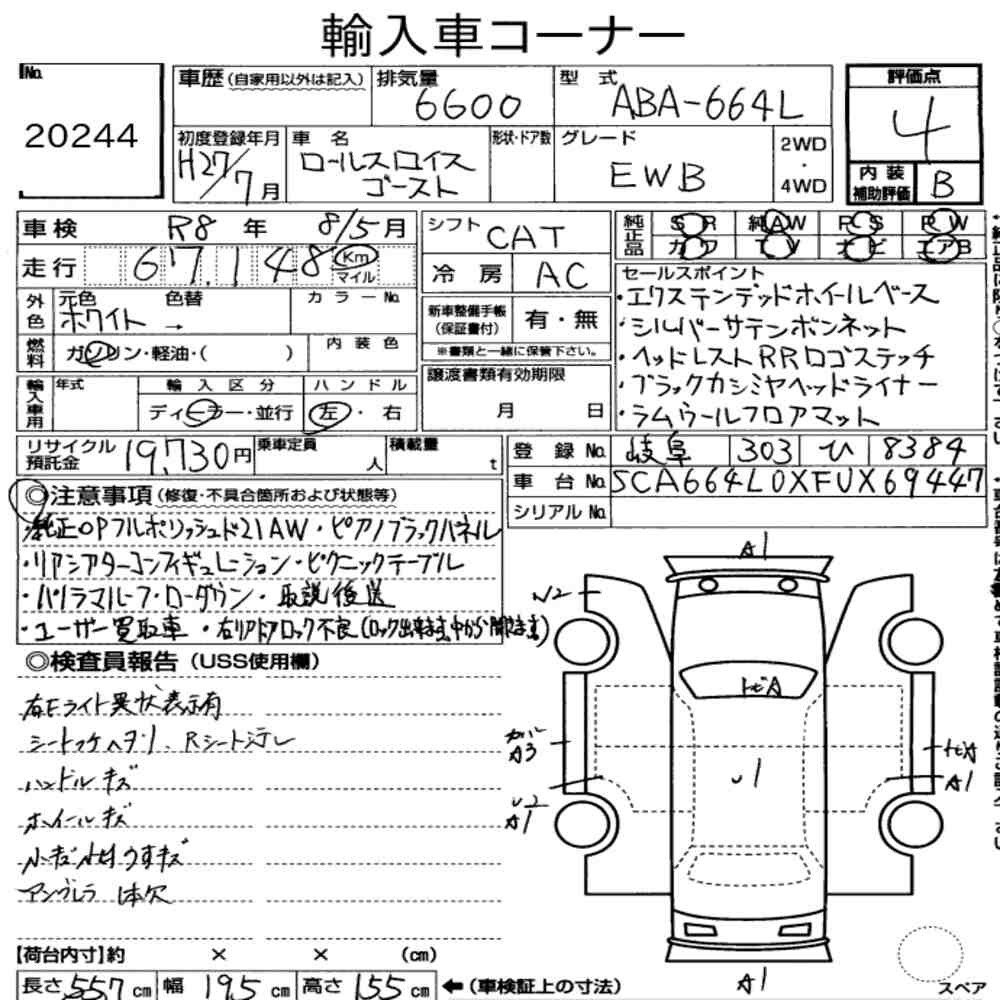 輸入車コーナー
No. 20244
車歴 (自家用以外は記入)
排気量 6600
型式 ABA-664L
評価点 4
初度登録年月 H27/7月
車名 ロールスロイス ゴースト
形状・ドア数
グレード EWB
2WD・4WD
内装補助評価 B
車検 R8年 8/5月
走行 67,148 Km マイル
外色 元色 ホワイト 色替 → カラーNo.
燃料 ガソリン・軽油・( ) 内装色
輸入車用 年式 輸入区分 ディーラー・並行 ハンドル 左・右
シフト CAT
冷房 AC
新車整備手帳(保証書付) 有・無
※書類と一緒に保管下さい。
譲渡書類有効期限
月 日
純正品 SR 純AW PS PW
カワ TV ナビ エアB
セールスポイント
・エクステンデッドホイールベース
・シルバーサテンボンネット
・ヘッドレストRRロゴステッチ
・ブラックカシミヤヘッドライナー
・ラムウールフロアマット
リサイクル預託金 19,730円
乗車定員 人
積載量 t
登録No. 岐阜 303 ひ 8384
車台No. SCA664L0XFUX69447
シリアルNo.
◎注意事項(修復・不具合箇所および状態等)
純正OPフルポリッシュド21AW・ピアノブラックパネル
・リアシアターコンフィギュレーション・ピクニックテーブル
・パノラマルーフ・ローダウン・取説後送
・ユーザー買取車 ・右リアドアロック不良(ロック出来ます。中から開きます)
◎検査員報告(USS使用欄)
右Fライト異状表示有
シートスケヘタリ、Rシート汚レ
ハンドルキズ
ホイールキズ
小キズ 小凹 うすキズ
アンブレラ 1本欠
A1
W2
トビA
ガル A3
U1
トビA
A1
U2
A1
A1
【荷台内寸】約 × × (cm)
長さ 557 cm 幅 195 cm 高さ 155 cm
←(車検証上の寸法)
スペア